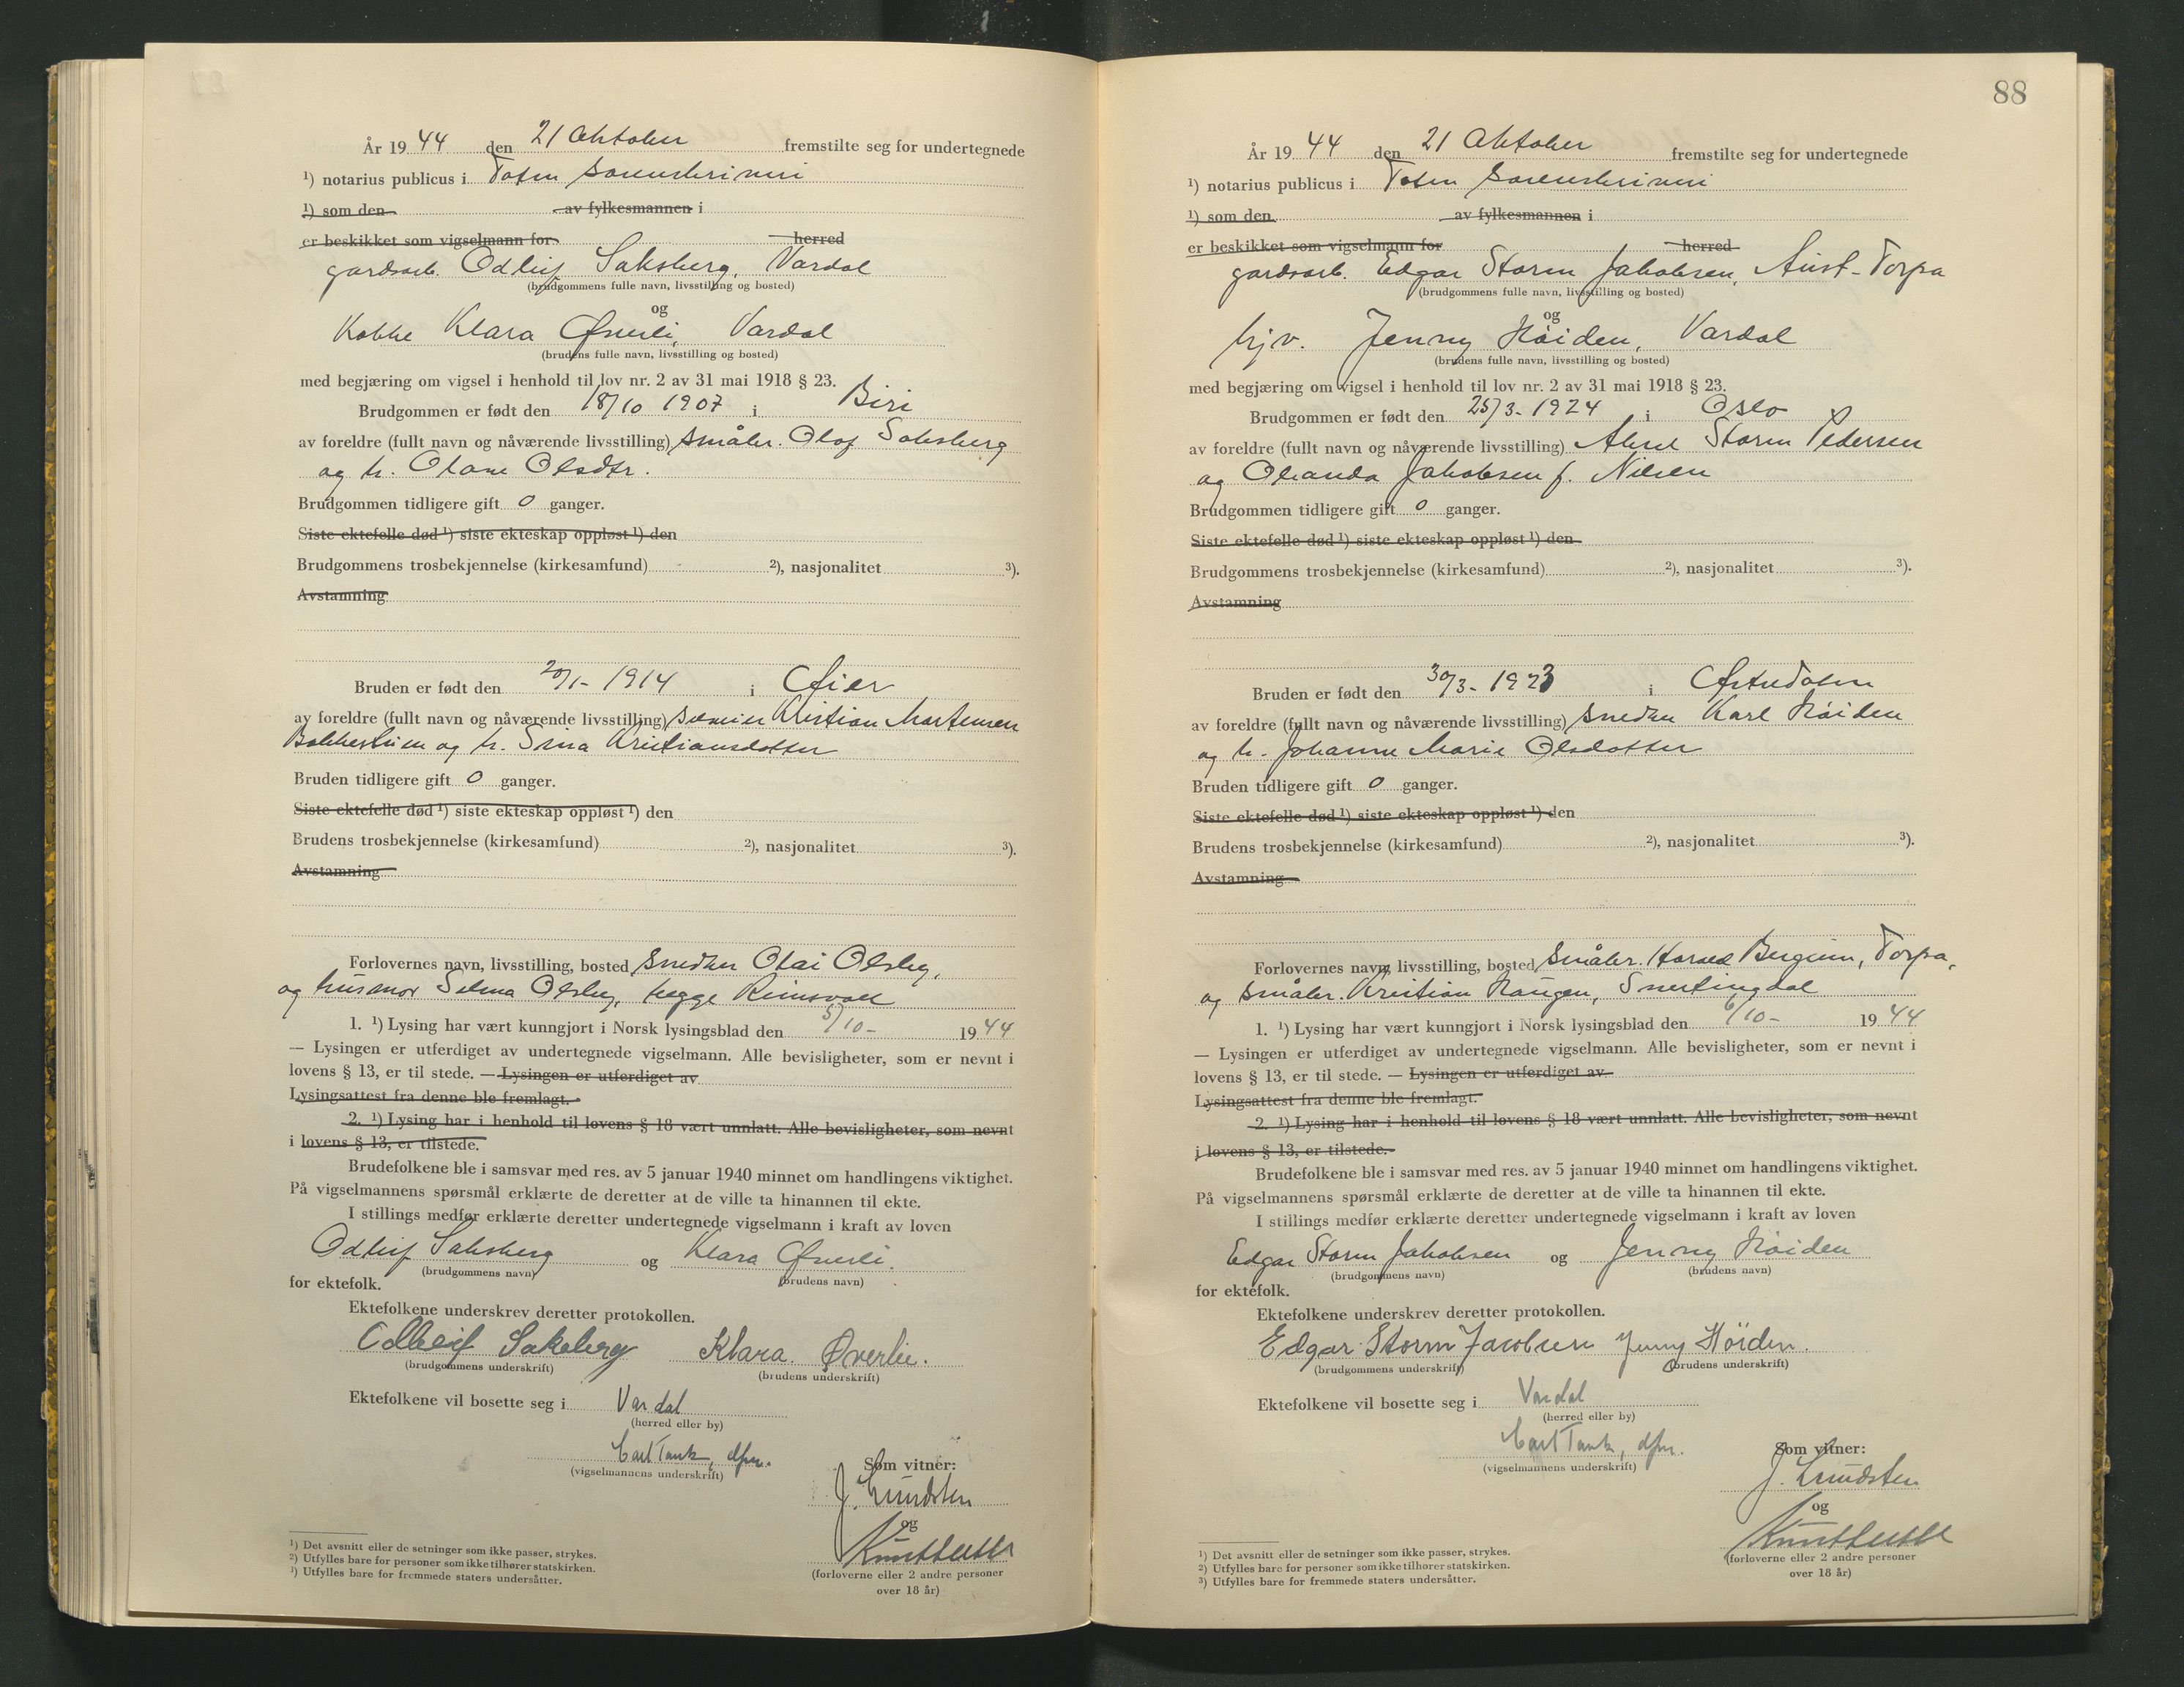 År 19 44 den 21 Oktober fremstilte seg for undertegnede
¹) notarius publicus i Toten Sorenskriveri
¹) som den av fylkesmannen i
er beskikket som vigselmann for herred
gardsarb. Odleif Saksberg, Vardal
(brudgommens fulle navn, livsstilling og bosted)
og
Kokke Klara Øverli, Vardal
(brudens fulle navn, livsstilling og bosted)
med begjæring om vigsel i henhold til lov nr. 2 av 31 mai 1918 § 23.
Brudgommen er født den 18/10 1907 i Biri
av foreldre (fullt navn og nåværende livsstilling) småbr. Olof Saksberg
og h. Olane Olsdtr.
Brudgommen tidligere gift 0 ganger.
Siste ektefelle død ¹) siste ekteskap oppløst ¹) den
Brudgommens trosbekjennelse (kirkesamfund) ²), nasjonalitet ³).
Avstamning
Bruden er født den 20/1- 1914 i Øier
av foreldre (fullt navn og nåværende livsstilling) Kristian Martinsen
og h. Sina Kristiansdotter
Bruden tidligere gift 0 ganger.
Siste ektefelle død ¹) siste ekteskap oppløst ¹) den
Brudens trosbekjennelse (kirkesamfund) ²), nasjonalitet ³).
Avstamning
Forlovernes navn, livsstilling, bosted snedker Olai Olsby,
og husmor Selma Olsby, begge Reinsvoll
1. ¹) Lysing har vært kunngjort i Norsk lysingsblad den 5/10- 19 44
— Lysingen er utferdiget av undertegnede vigselmann. Alle bevisligheter, som er nevnt i
lovens § 13, er til stede. — Lysingen er utferdiget av
Lysingsattest fra denne ble fremlagt.
2. ¹) Lysing har i henhold til lovens § 18 vært unnlatt. Alle bevisligheter, som nevnt
i lovens § 13, er tilstede.
Brudefolkene ble i samsvar med res. av 5 januar 1940 minnet om handlingens viktighet.
På vigselmannens spørsmål erklærte de deretter at de ville ta hinannen til ekte.
I stillings medfør erklærte deretter undertegnede vigselmann i kraft av loven
Odleif Saksberg og Klara Øverli.
(brudgommens navn) (brudens navn)
for ektefolk.
Ektefolkene underskrev deretter protokollen.
Odleif Saksberg Klara Øverlie.
(brudgommens underskrift) (brudens underskrift)
Ektefolkene vil bosette seg i Vardal
(herred eller by)
Carl Tank, dfm.
(vigselmannens underskrift)
Som vitner:
J. Lundsten
og
(forloverne eller 2 andre personer
over 18 år)
¹) Det avsnitt eller de setninger som ikke passer, strykes.
²) Utfylles bare for personer som ikke tilhører statskirken.
³) Utfylles bare for fremmede staters undersåtter.
88
År 19 44 den 21 Oktober fremstilte seg for undertegnede
¹) notarius publicus i Toten Sorenskriveri
¹) som den av fylkesmannen i
er beskikket som vigselmann for herred
gardsarb. Edgar Storm Jakobsen, Aust-Torpa
(brudgommens fulle navn, livsstilling og bosted)
og
hjv. Jenny Høiden, Vardal
(brudens fulle navn, livsstilling og bosted)
med begjæring om vigsel i henhold til lov nr. 2 av 31 mai 1918 § 23.
Brudgommen er født den 25/3- 1924 i Oslo
av foreldre (fullt navn og nåværende livsstilling) Aksel Storm Pedersen
og Olianda Jakobsen f. Nilsen
Brudgommen tidligere gift 0 ganger.
Siste ektefelle død ¹) siste ekteskap oppløst ¹) den
Brudgommens trosbekjennelse (kirkesamfund) ²), nasjonalitet ³).
Avstamning
Bruden er født den 30/3- 1923 i
av foreldre (fullt navn og nåværende livsstilling) snedker Karl Høiden
og h. Johanne Marie Olsdotter
Bruden tidligere gift 0 ganger.
Siste ektefelle død ¹) siste ekteskap oppløst ¹) den
Brudens trosbekjennelse (kirkesamfund) ²), nasjonalitet ³).
Avstamning
Forlovernes navn, livsstilling, bosted småbr. Harald Bergum, Torpa,
og småbr. Kristian Haugen, Snertingdal
1. ¹) Lysing har vært kunngjort i Norsk lysingsblad den 6/10- 19 44
— Lysingen er utferdiget av undertegnede vigselmann. Alle bevisligheter, som er nevnt i
lovens § 13, er til stede. — Lysingen er utferdiget av
Lysingsattest fra denne ble fremlagt.
2. ¹) Lysing har i henhold til lovens § 18 vært unnlatt. Alle bevisligheter, som nevnt
i lovens § 13, er tilstede.
Brudefolkene ble i samsvar med res. av 5 januar 1940 minnet om handlingens viktighet.
På vigselmannens spørsmål erklærte de deretter at de ville ta hinannen til ekte.
I stillings medfør erklærte deretter undertegnede vigselmann i kraft av loven
Edgar Storm Jakobsen og Jenny Høiden
(brudgommens navn) (brudens navn)
for ektefolk.
Ektefolkene underskrev deretter protokollen.
Edgar Storm Jacobsen Jenny Høiden.
(brudgommens underskrift) (brudens underskrift)
Ektefolkene vil bosette seg i Vardal
(herred eller by)
Carl Tank, dfm.
(vigselmannens underskrift)
Som vitner:
J. Lundsten
og
(forloverne eller 2 andre personer
over 18 år)
¹) Det avsnitt eller de setninger som ikke passer, strykes.
²) Utfylles bare for personer som ikke tilhører statskirken.
³) Utfylles bare for fremmede staters undersåtter.